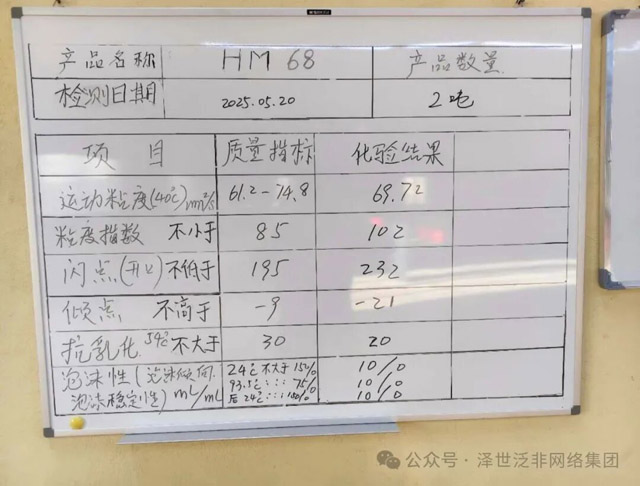 产品名称 HM 68 产品数量
检测日期 2025.05.20 2吨
项目 质量指标 化验结果
运动粘度(40℃)mm²/s 61.2-74.8 69.72
粘度指数 不小于 85 102
闪点(开口)不低于 195 232
倾点 不高于 -9 -21
抗乳化 54℃ 不大于 30 20
泡沫性(泡沫倾向/ 24℃ 不大于 150/0 10/0
93.5℃ : : : 75/0 10/0
泡沫稳定性) mL/mL 后24℃ : : : 150/0 10/0
公众号·泽世泛非网络集团